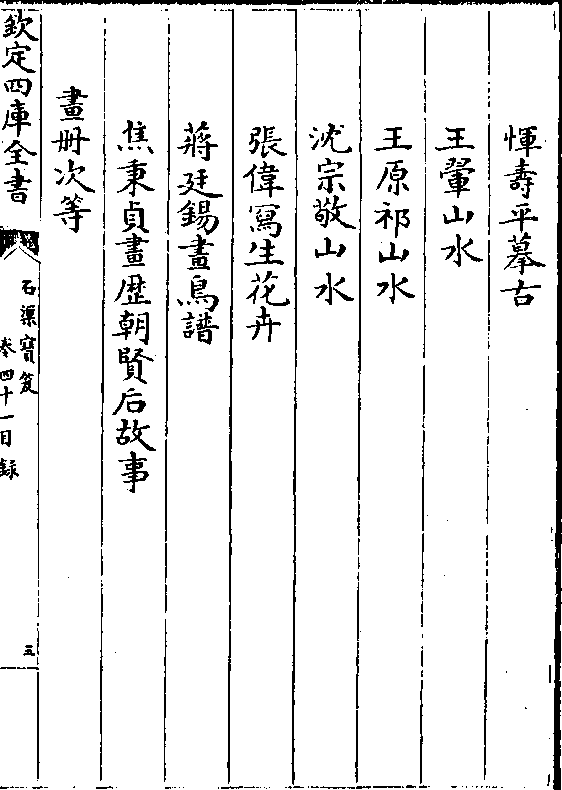 惲壽平摹古
王翬山水
王原祁山水
沈宗敬山水
張偉寫生花卉
蔣廷錫畫鳥譜
焦秉貞畫歴朝賢后故事
畫册次等
欽定四庫全書
石渠寳笈
卷四十一目錄
三